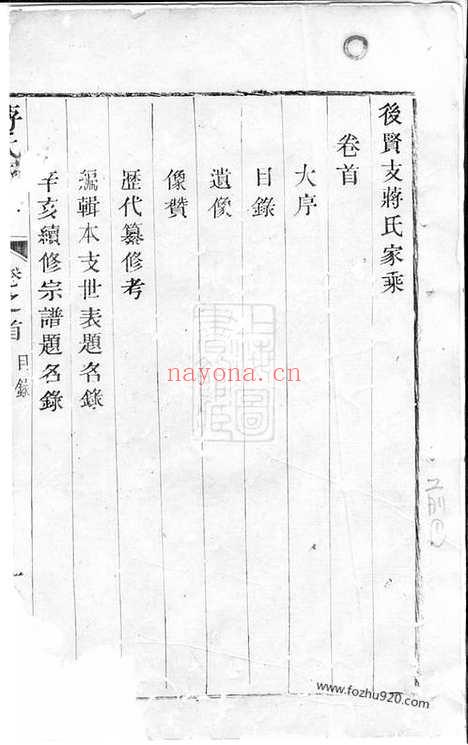 後賢支蔣氏家乘
卷首
大序
目錄
遺像
像贊
歷代纂修考
編輯本支世表題名錄
辛亥續修宗譜題名錄
卷之首
目錄
nayona.cn
www.fozhu920.com